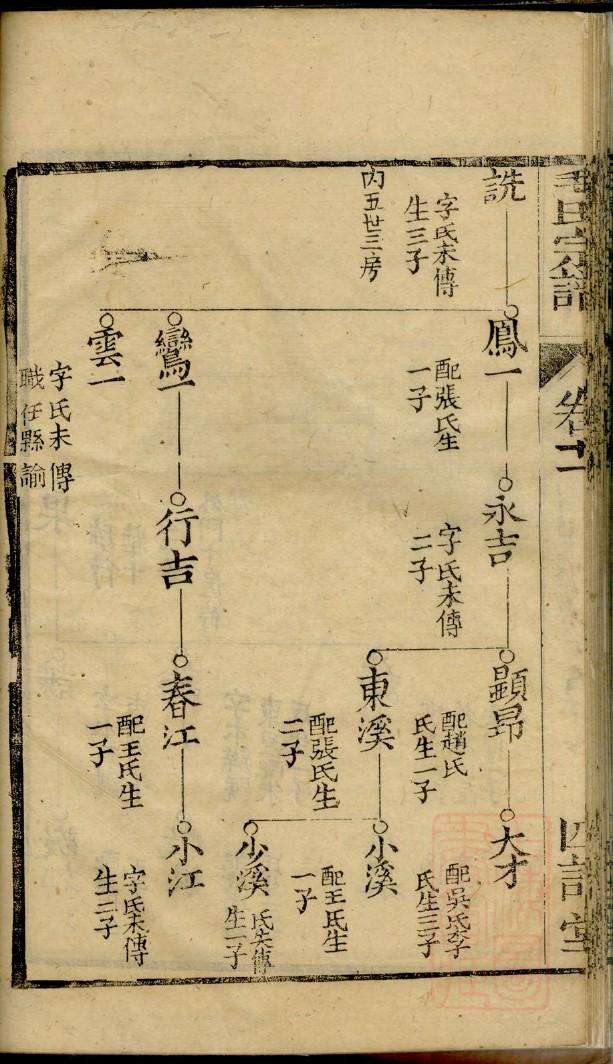 毛氏宗譜
卷十一
四訂堂
詵
字氏未傳
生三子
內五世三房
鳳一
配張氏生
一子
鸞一
雲一
字氏未傳
職任縣諭
永吉
字氏未傳
二子
行吉
顯昂
配趙氏
氏生一子
東溪
配張氏生
二子
春江
配王氏生
一子
大才
配吳氏李
氏生三子
小溪
配王氏生
一子
少溪
氏失傳
生一子
小江
字氏未傳
生二子